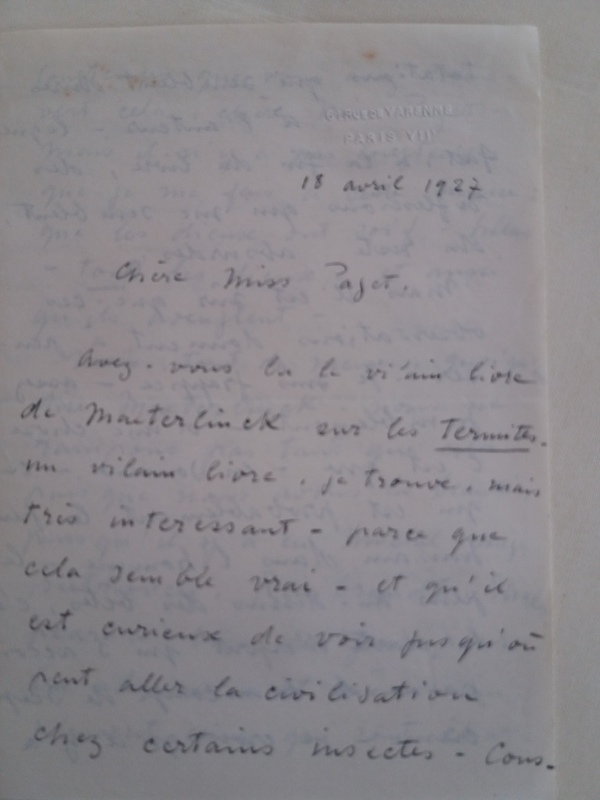 RUE DE VARENNE
PARIS VII
18 avril 1927
Chère Miss Paget,
Avez-vous lu le vilain livre
de Maeterlinck sur les Termites.
un vilain livre, je trouve, mais
très interessant - parce que
cela semble vrai - et qu'il
est curieux de voir jusqu'où
peut aller la civilisation
chez certains insectes - Cons-